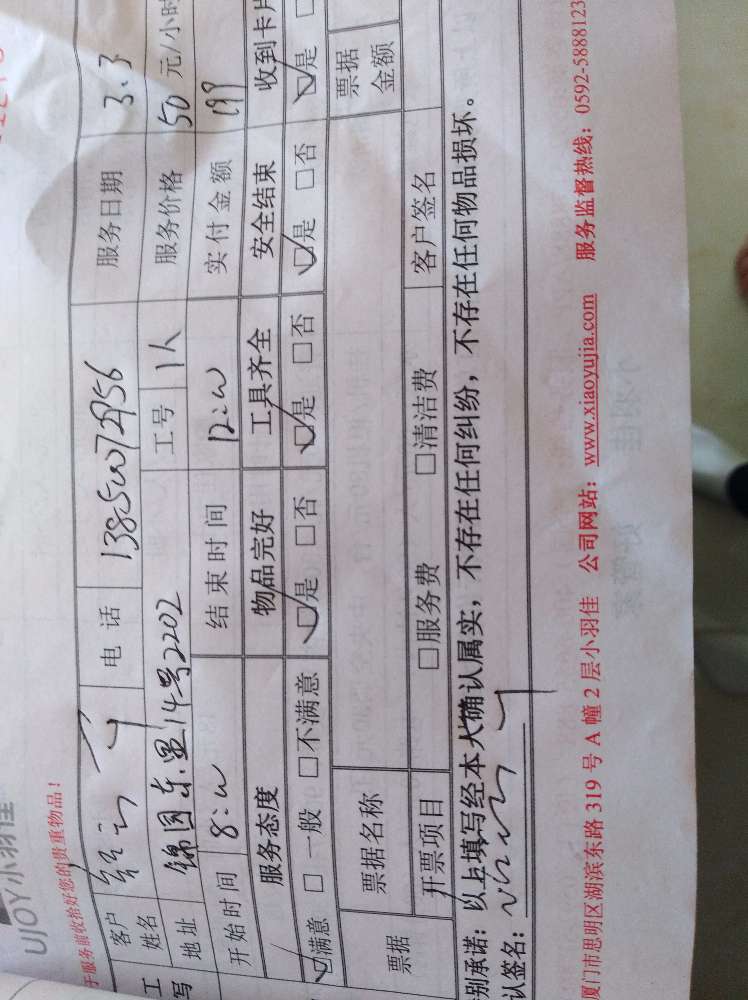 UJOY小羽佳
于服务前收拾好您的贵重物品！
客户姓名 电话 服务日期 3.3
地址 锦园东里14号2202 工号 1人 服务价格 50 元/小时
开始时间 8:00 结束时间 12:00 实付金额 199
服务态度 物品完好 工具齐全 安全结束 收到卡片
☑满意 □一般 □不满意 ☑是 □否 ☑是 □否 ☑是 □否 ☑是
票据 票据名称 票据金额
开票项目 □服务费 □清洁费 客户签名
别承诺：以上填写经本人确认属实，不存在任何纠纷，不存在任何物品损坏。
认签名：
厦门市思明区湖滨东路 319 号 A 幢 2 层小羽佳 公司网站：www.xiaoyujia.com 服务监督热线：0592-5888123